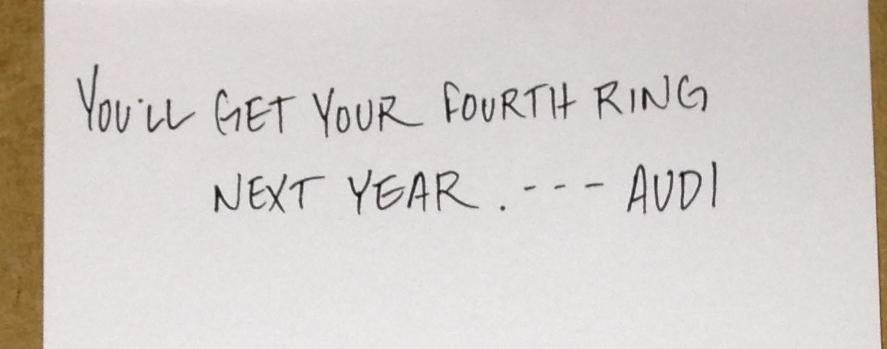 YOU'LL GET YOUR FOURTH RING
NEXT YEAR. --- AUDI